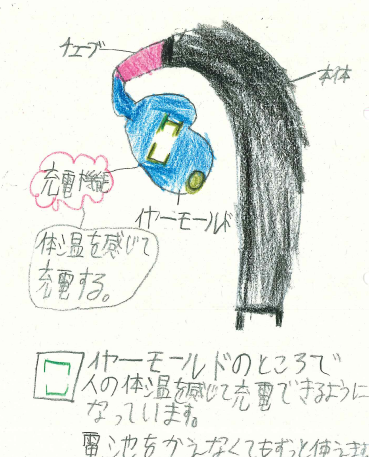 チューブ
本体
充電機能
イヤーモールド
体温を感じて
充電する。
イヤーモールドのところで
人の体温を感じて充電できるように
なっています。
電池をかえなくてもずっと使えます